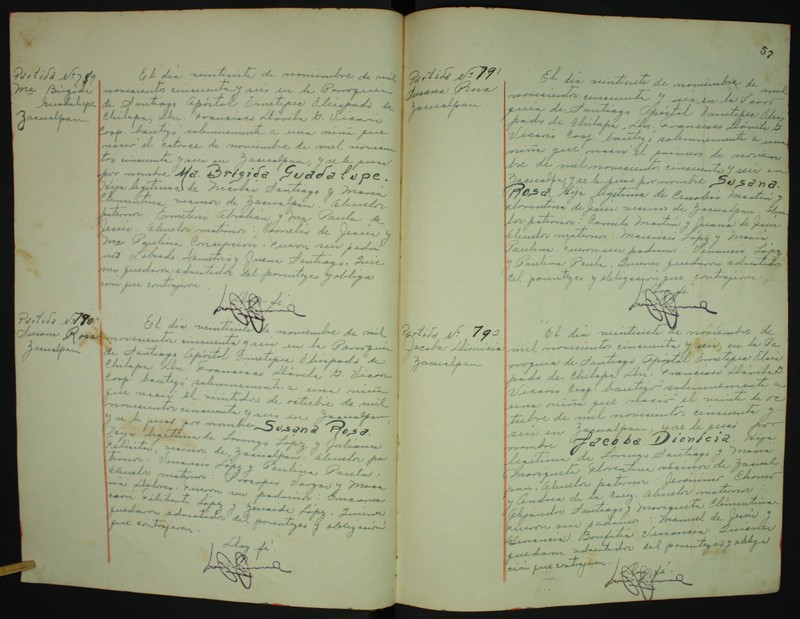 Partida Nº 789
Ma Brigida
Guadalupe
Zacualpan.
El día veintisiete de noviembre de mil
novecientos cincuenta y seis en la Parroquia
de Santiago Apóstol Ometepec Obispado de
Chilapa, Gro. Francisco Dávila G. Vicario
Coop. bautizó solemnemente a una niña que
nació el catorce de noviembre de mil novecien
tos cincuenta y seis en Zacualpan, y se le puso
por nombre Ma. Brigida Guadalupe.
Hija legítima de Nicolas Santiago y Maria
Clementina vecinos de Zacualpan. Abuelos
paternos: Emiterio Abraham y Ma Paula de
Jesús. Abuelos maternos: Cornelio de Jesús y
Ma Paulina Concepcion. Fueron sus padri
nos y Juana Santiago. Quie
nes quedaron advertidos del parentezco y obliga
ción que contrajeron.
Doy fé
Partida Nº 790
Susana Rosa
Zacualpan
El día veintisiete de noviembre de mil
novecientos cincuenta y seis en la Parroquia
de Santiago Apóstol Ometepec Obispado de
Chilapa Gro. Francisco Dávila G. Vicario
Coop. bautizó solemnemente a una niña
que nació el veintidos de octubre de mil
novecientos cincuenta y seis en Zacualpan
y se le puso por nombre Susana Rosa.
Hija legítima de Lorenzo López y Juliana
Felicita, vecinos de Zacualpan. Abuelos pa
ternos: Venancio López y Paulina Paula.
Abuelos maternos: Vargas y Maria
Fueron sus padrinos:
López y López. Quienes
quedaron advertidos del parentezco y obligación
que contrajeron.
Doy fé
57
Partida Nº 791
Susana Rosa
Zacualpan
El día veintisiete de noviembre de mil
novecientos cincuenta y seis en la Parro
quia de Santiago Apóstol Ometepec Obis
pado de Chilapa, Gro. Francisco Dávila G.
Vicario Coop. bautizó solemnemente a una
niña que nació el primero de noviem
bre de mil novecientos cincuenta y seis en
Zacualpan y se le puso por nombre Susana
Rosa. Hija legítima de Martin y
Florentina de Jesús vecinos de Zacualpan. Abue
los paternos: Camilo Martin y Juana de Jesús
Abuelos maternos: López y Maria
Paulina. Fueron sus padrinos: Venancio López
y Paulina Paula. Quienes quedaron advertidos
del parentezco y obligación que contrajeron
Doy fé
Partida Nº 792
Jacoba Dionicia
Zacualpan
El día veintisiete de noviembre de
mil novecientos cincuenta y seis, en la Pa
rroquia de Santiago Apóstol Ometepec Obis
pado de Chilapa Gro. Francisco Dávila G.
Vicario Coop. bautizó solemnemente a
una niña que nació el veinte de oc
tubre de mil novecientos cincuenta y
seis en Zacualpan, y se le puso por
nombre Jacoba Dionicia. Hija
legítima de Lorenzo Santiago y Maria
Margarita Florentina vecinos de Zacual
pan. Abuelos paternos: Jeronimo
y Andrea de la Cruz. Abuelos maternos:
Alejandro Santiago y Margarita Clementina.
Fueron sus padrinos: Manuel de Jesús y
Venancia Bonfilia Venancia Quienes
quedaron advertidos del parentezco y obliga
ción que contrajeron.
Doy fé.